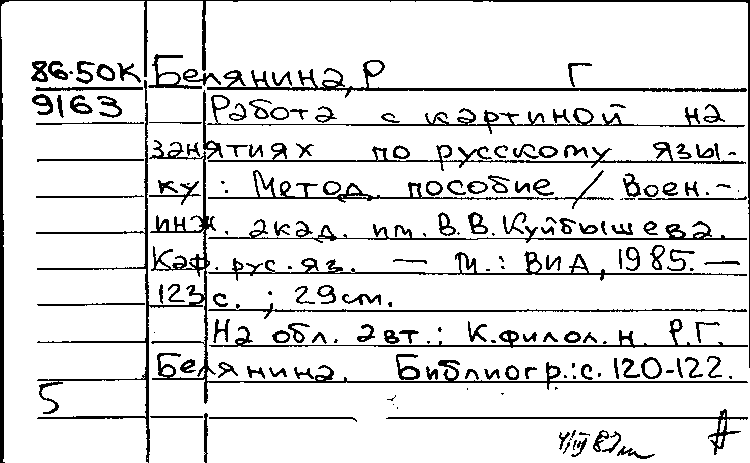 86-50К Белянина, Р Г
9163 Работа с картиной на
занятиях по русскому язы-
ку : Метод. пособие / Воен.-
инж. акад. им. В.В. Куйбышева.
Каф. рус. яз. — М.: ВИА, 1985. —
123 с. ; 29 см.
На обл. авт.: К.филол.н. Р.Г.
Белянина. Библиогр.: с. 120-122.
5